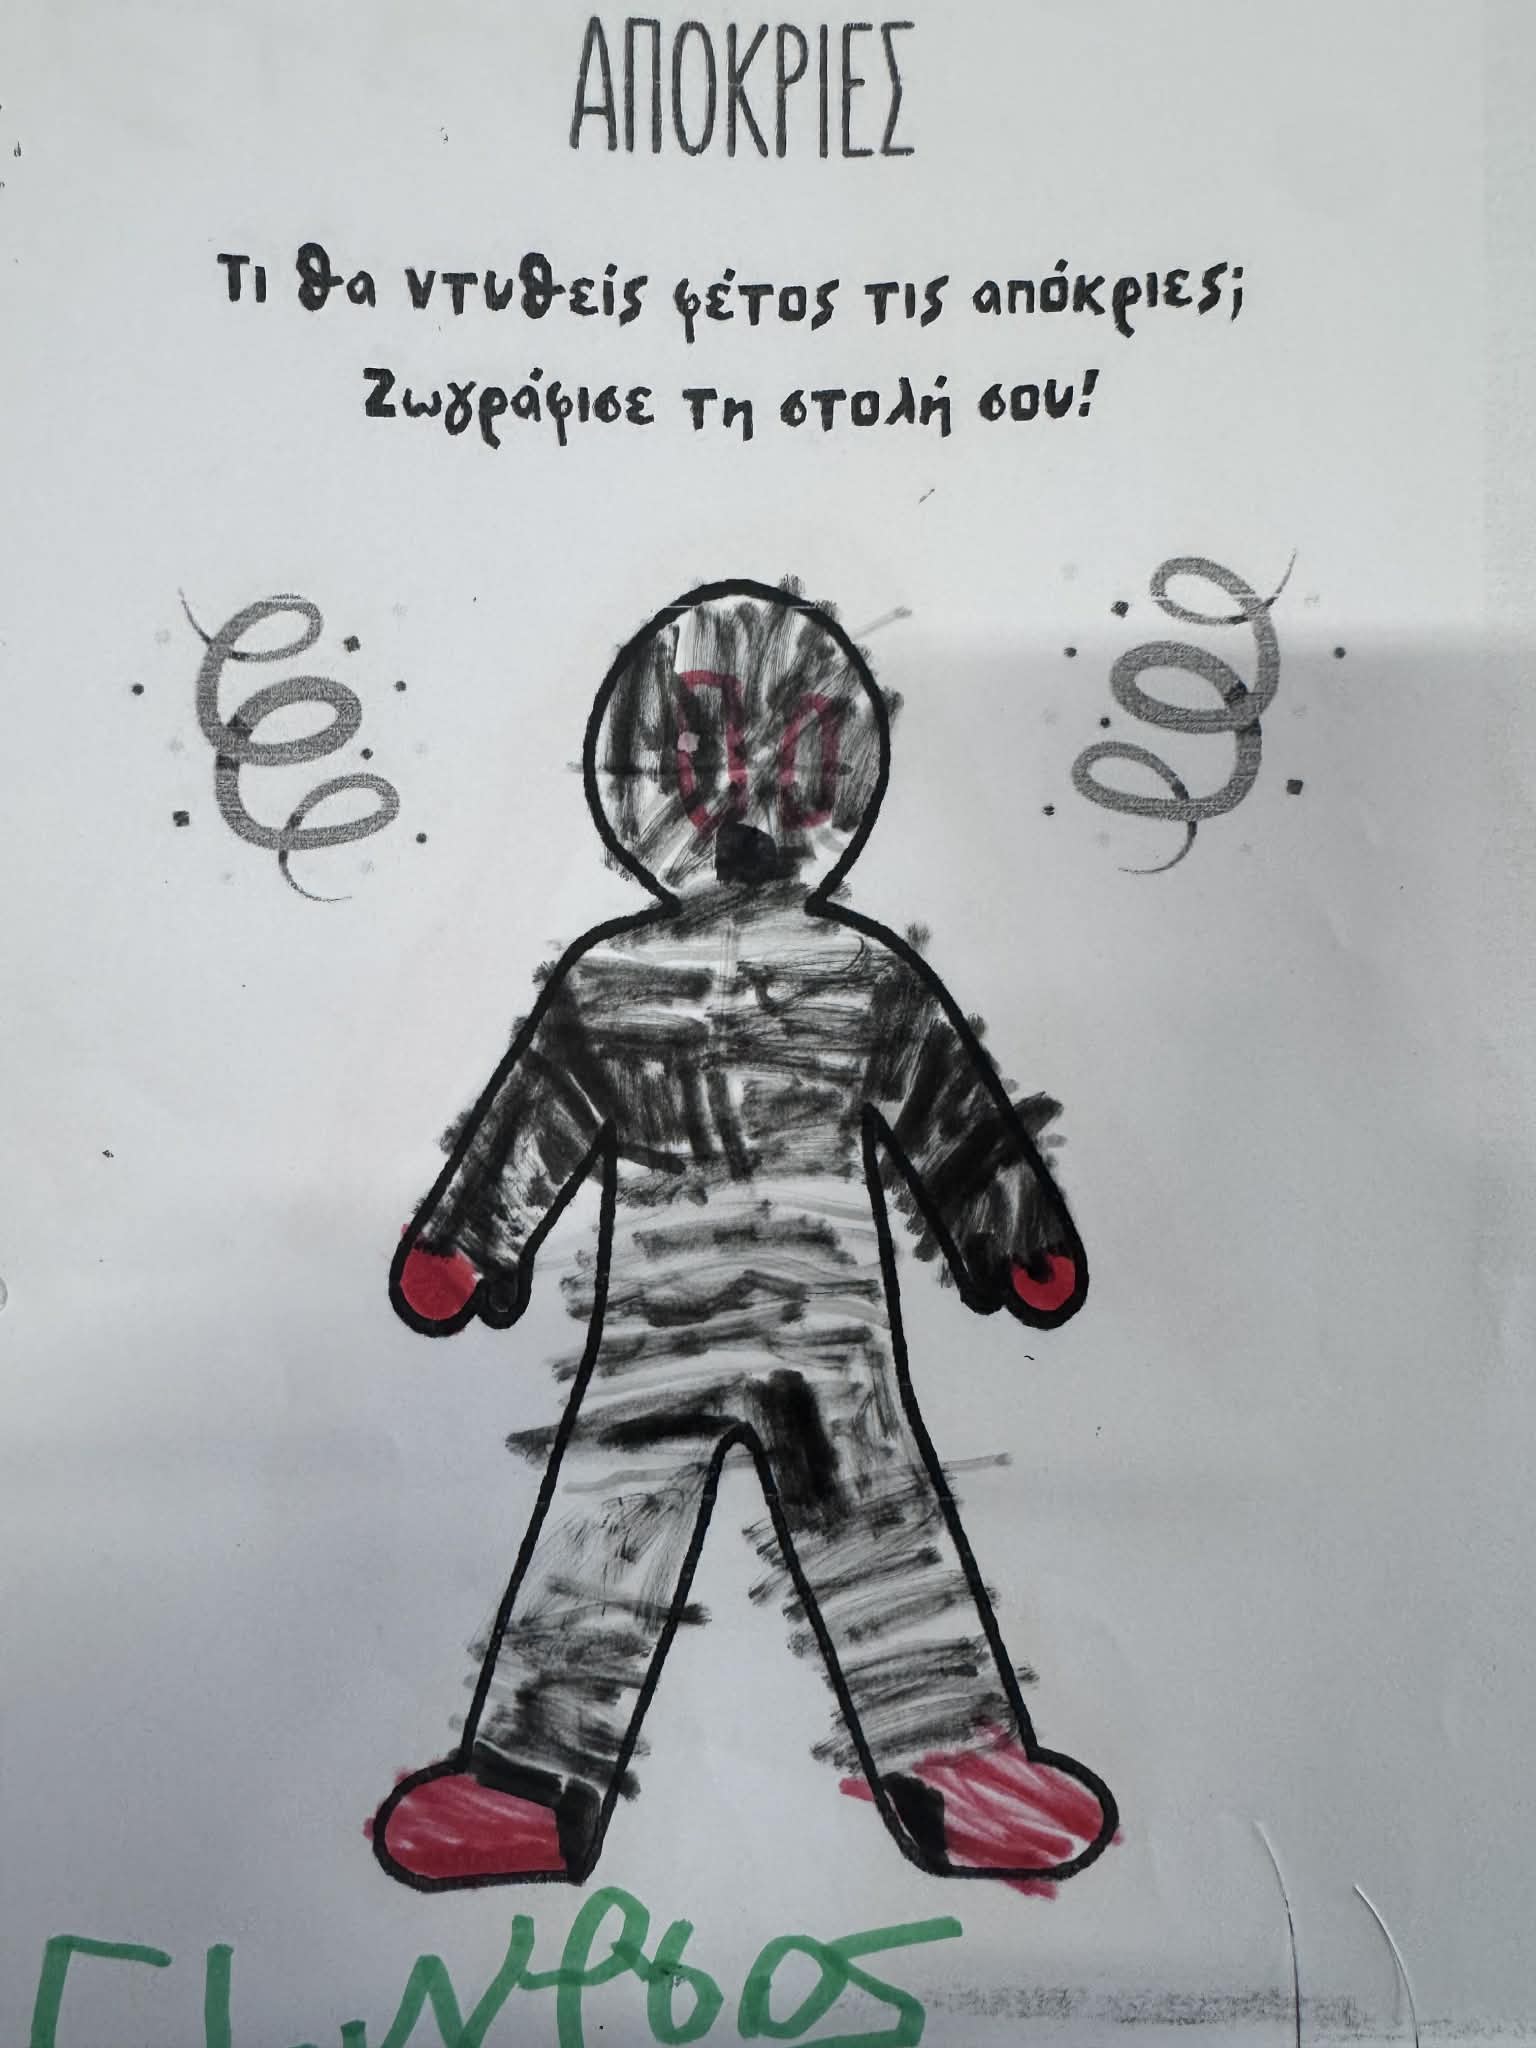 ΑΠΟΚΡΙΕΣ
Τι θα ντυθείς φέτος τις απόκριες;
Ζωγράφισε τη στολή σου!